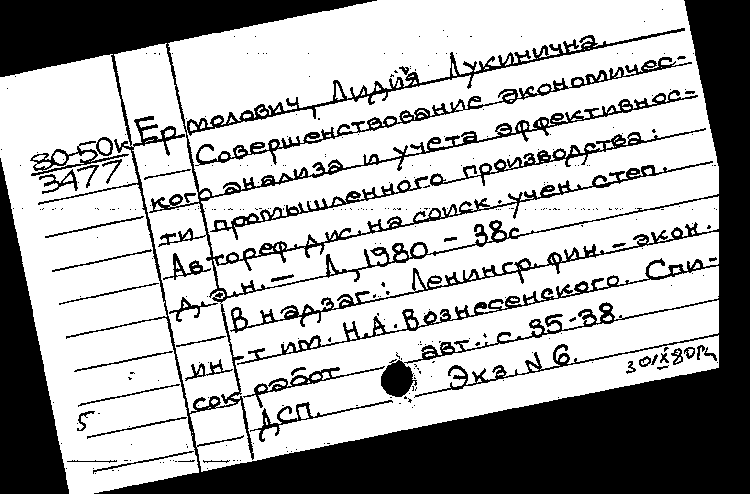 80-50к
3477
Ермолович, Лидия Лукинична.
Совершенствование экономичес-
кого анализа и учета эффективнос-
ти промышленного производства:
Автореф. дис. на соиск. учен. степ.
д.э.н. — Л., 1980. - 38с.
В надзаг.: Ленингр. фин. - экон.
ин-т им. Н.А. Вознесенского. Спи-
сок работ авт.: с. 35-38.
Экз. N 6.
ДСП.
5